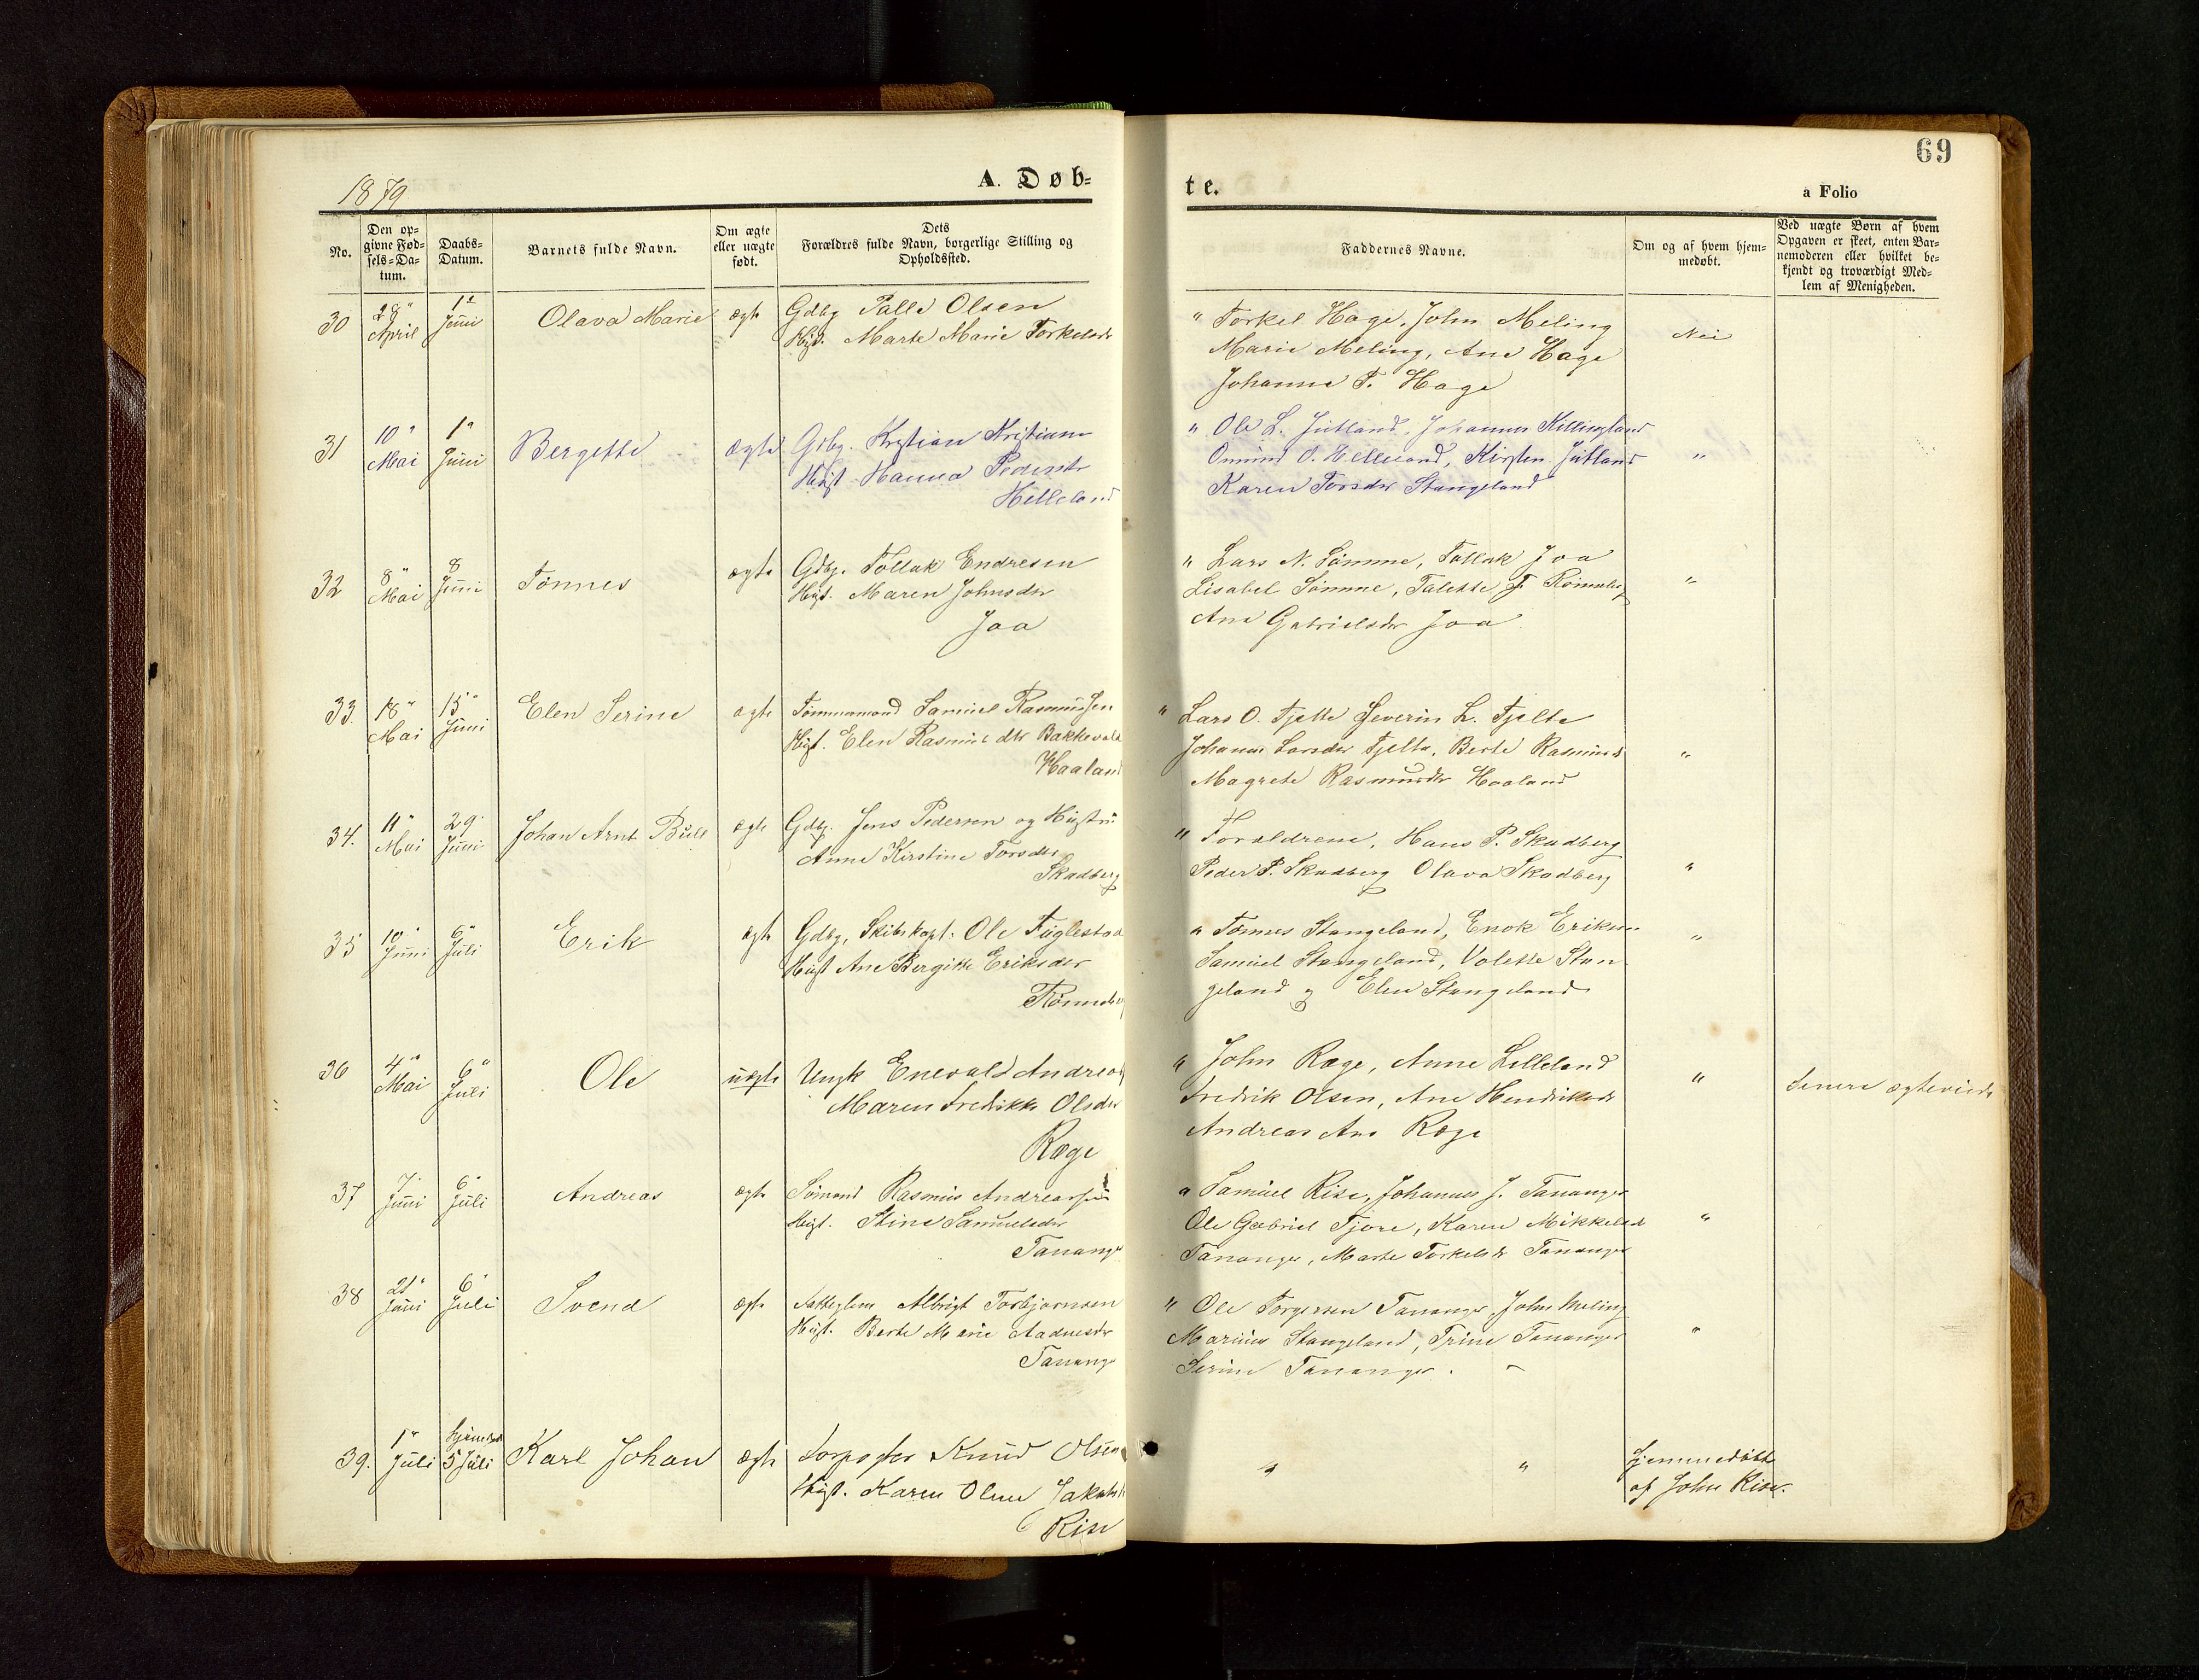 69
1879
A. Døb-
te.
a Folio
No.
Den op-
givne Fød-
sels-Da-
tum.
Daabs-
Datum.
Barnets fulde Navn.
Om ægte
eller uægte
født.
Dets
Forældres fulde Navn, borgerlige Stilling og
Opholdssted.
Faddernes Navne.
Om og af hvem hjem-
medøbt.
Ved uægte Børn af hvem
Opgaven er skeet, enten Bar-
nemoderen eller hvilket be-
kjendt og troværdigt Med-
lem af Menigheden.
30
28"
April
1"
Juni
Olava Marie
ægte
Gdbg Palle Olsen
Hust. Marte Marie Torkelsdr
" Torkel Hage, John Meling
Marie Meling, Ane Hage
Johanne T. Hage
Nei
31
10"
Mai
1"
Juni
Bergette
ægte
Gdbg. Kristian Kristians
Hust. Hanna Pedersdr
Helleland
" Ole L. Jutland, Johannes
Onund O. Helleland, Kirsten Jutland
Karen Torsdr Stangeland
"
32
8"
Mai
8
Juni
Tønnes
ægte
Gdbg. Tollak Endresen
Hust. Maren Johnsdr
Joa
" Lars N. Sømme, Tollak Joa
Lisabel Sømme, Talette T.
Ane Gabrielsdr Joa
"
33.
18"
Mai
15"
Juni
Elen Serine
ægte
Tømmermand Samuel Rasmussen
Hust. Elen Rasmusdtr
Haaland
" Lars O. Tjelte Severin L. Tjelte
Johanne Larsdr Tjelte, Berte Rasmusd
Magrete Rasmusdr Haaland
"
34.
11"
Mai
29.
Juni
Johan Arnt Bull
ægte
Gdbg. Jens Pedersen og Hustru
Anne Kirstine Torsdr
Skadberg
" Forældrene, Hans P. Skadberg
Peder P. Skadberg Olava Skadberg
"
35
10"
Juni
6"
Juli
Erik
ægte
Gdbg, Skibskapt. Ole Fuglestad
Hust Ane Bergitte Eriksdr
" Tønnes Stangeland, Enok Eriksen
Samuel Stangeland, Volette Stan
geland og Elen Stangeland
"
36
4"
Mai
6"
Juli
Ole
uægte
Ungk Enevald Andreas
Maren Fredrikke Olsdr
Ræge
" John Ræge, Anne Lilleland
Fredrik Olsen, Ane Hendriksdr
Andreas Ane Ræge
"
Senere ægteviede
37
7.
Juni
6"
Juli
Andreas
ægte
Sømand Rasmus Andreassen
Hust. Stine Samuelsdr
Tananger
" Samuel Rise, Johannes J. Tananger
Ole Gabriel Tjore, Karen Mikkelsd
Tananger, Marte Torkelsdr Tananger
"
38
21"
Juni
6"
Juli
Svend
ægte
Albrigt Torbjørnsen
Hust. Berte Marie Aadnesdr
Tananger
" Ole Torgersen Tananger, John Meling
Marius Stangeland, Trine Tananger
Serine Tananger.
"
39.
1"
Juli
5 Juli
Karl Johan
ægte
Knud Olsen
Hust. Karen Oline Jakobsd
Rise
"
"
hjemmedøbt
af John Rise.